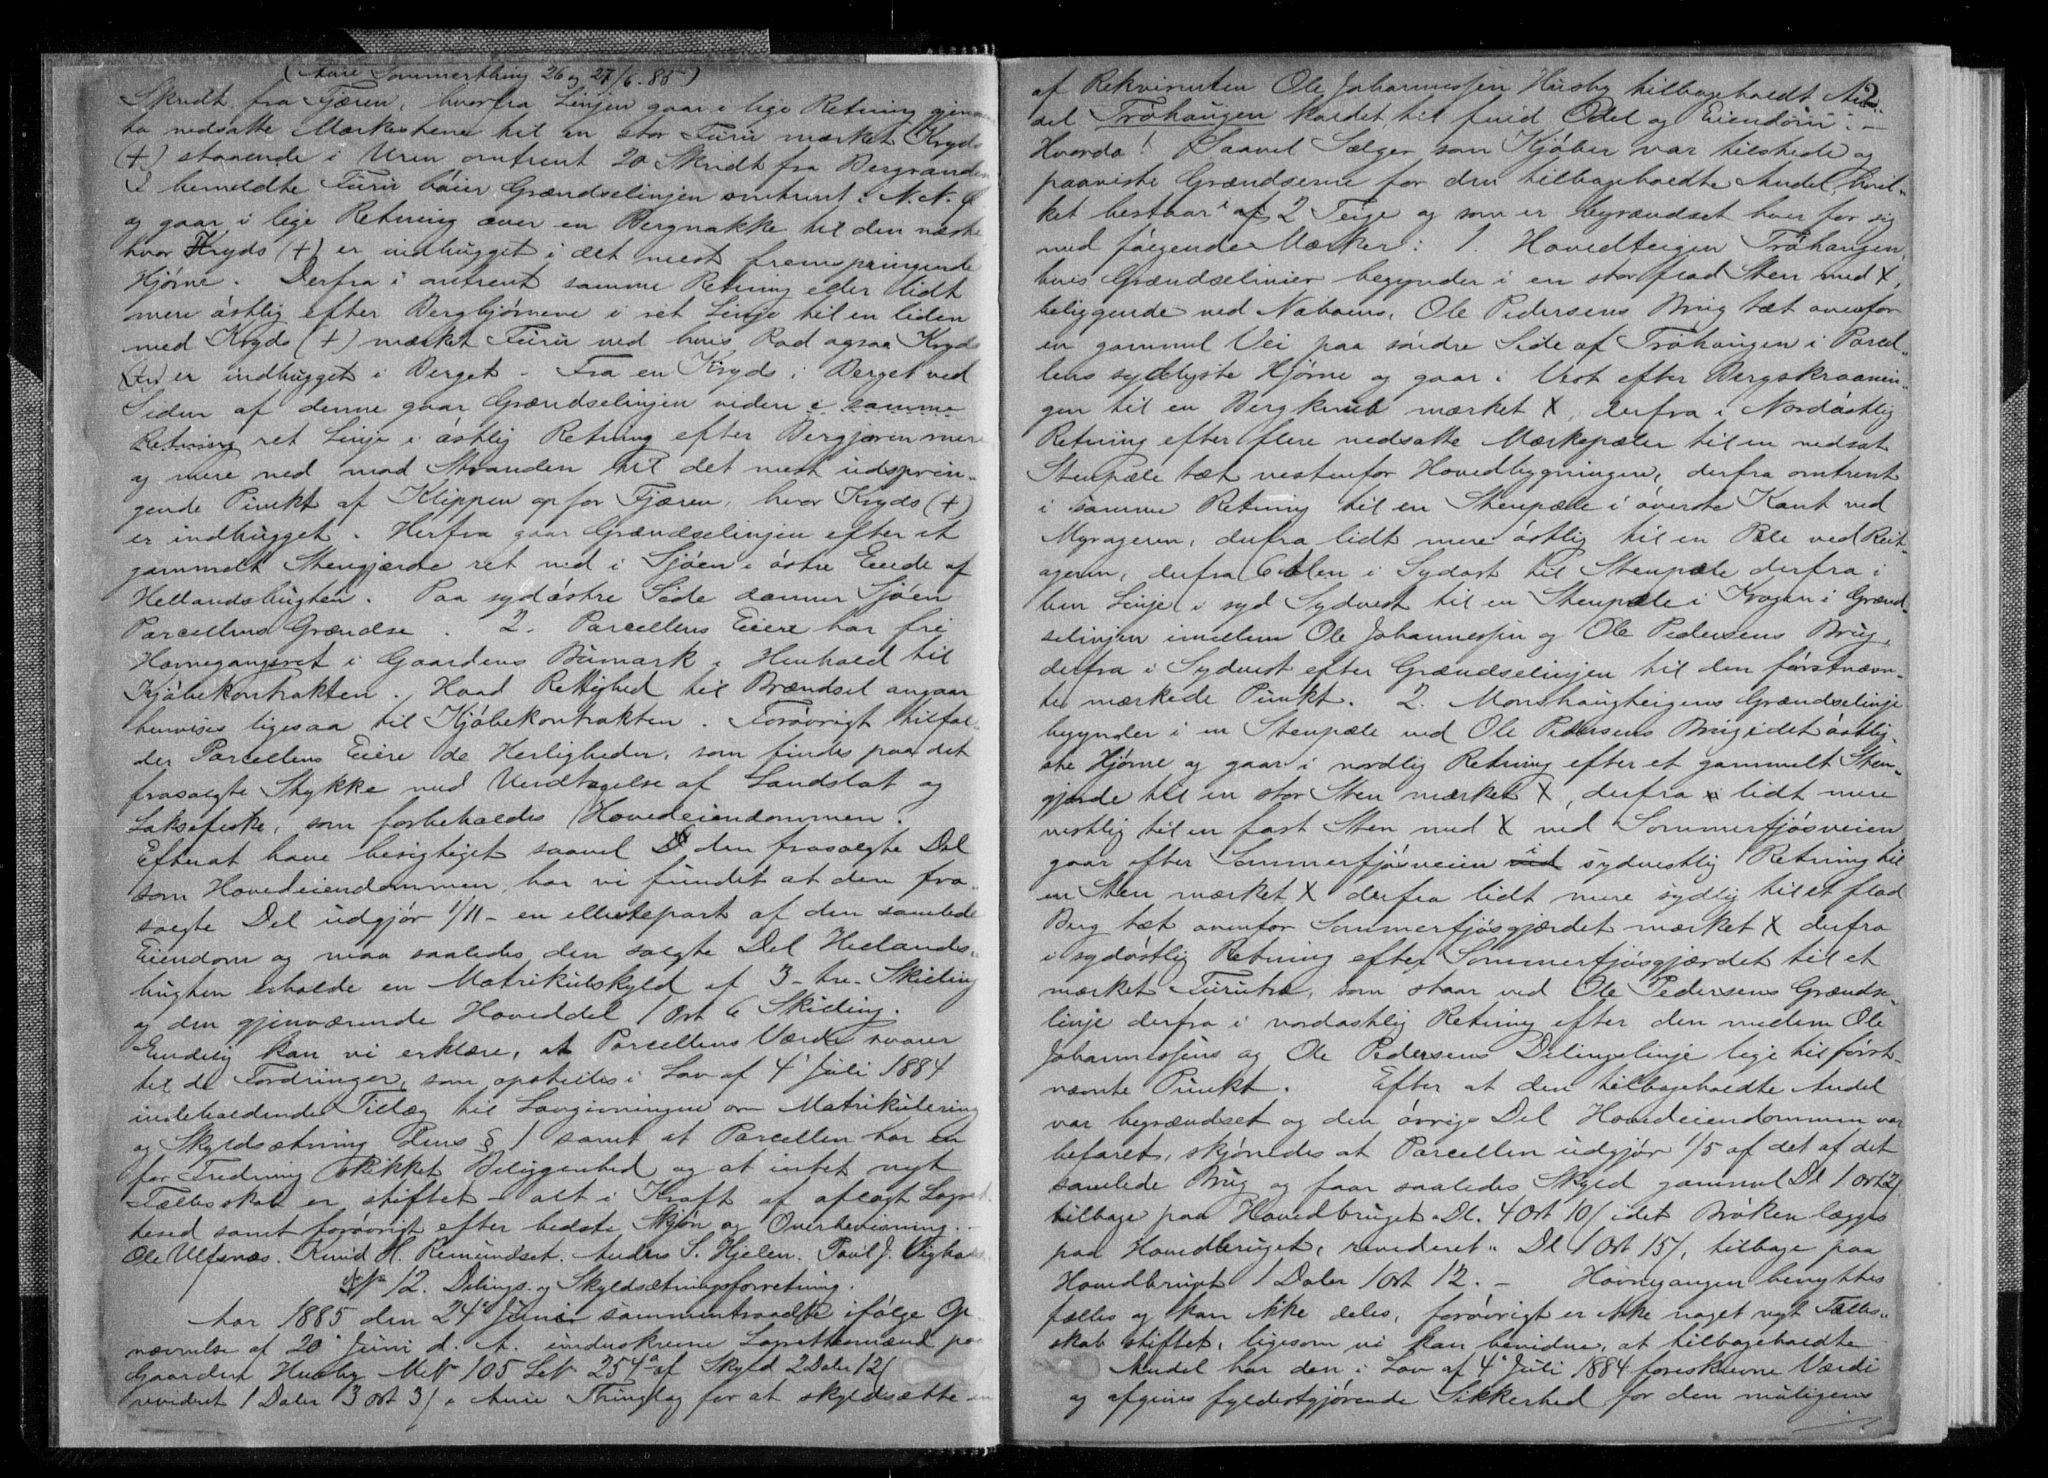 (Aure Sommerthing 26 og 27/6. 85)
Skridt fra Fjæren, hvorfra Linjen gaar i lige Retning gjennem
to nedsatte Mærkestene til en stor Furu mærket Kryds
(+) staaende i Uren omtrent 20 Skridt fra Bergranden
I bemeldte Furu bøier Grændselinjen omtrent i N.N.Ø
og gaar i lige Retning over en Bergnakke til den næste
hvor Kryds (+) er indhugget i det mest fremspringende
Hjørne. Derfra i omtrent samme Retning eller lidt
mere østlig efter Berghjørnene i ret Linje til en liden
med Kryds (+) mærket Furu ved hvis Rod ogsaa Kryds
(+) er indhugget i Berget. Fra en Kryds i Berget ved
Siden af denne gaar Grændselinjen videre i samme
Retning ret Linje i østlig Retning efter Bergjøren mere
og mere ned mod Stranden til det mest udsprin-
gende Punkt af Klippen op for Fjæren, hvor Kryds (+)
er indhugget. Herfra gaar Grændselinjen efter et
gammelt Stengjærde ret ned i Sjøen i østre Ende af
Hellandsbugten. Paa sydøstre Side danner Sjøen
Parcellens Grændse. 2. Parcellens Eiere har fri
Havnegangsret i Gaardens Bumark i Henhold til
Kjøbekontrakten. Hvad Rettighed til Brændsel angaar
henvises ligesaa til Kjøbekontrakten. Forøvrigt tilfal-
der Parcellens Eiere de Herligheder, som findes paa det
frasolgte Stykke med Undtagelse af Landslot og
Laksefiske, som forbeholdes Hovedeiendommen.
Efterat have besigtiget saavel den frasolgte Del
som Hovedeiendommen, har vi fundet at den fra-
solgte Del udgjør 1/11 - en ellevtepart af den samlede
Eiendom og maa saaledes den solgte Del Hellands-
bugten erholde en Matrikulskyld af 3 - tre - Skilling
og den gjenværende Hoveddel 1 Ort 6 Skilling.
Endelig kan vi erklære, at Parcellens Værdi svarer
til de Fordringer, som opstilles i Lov af 4' Juli 1884
indeholdende Tillæg til Lovgivningen om Matrikulering
og Skyldsætning dens § 1 samt at Parcellen har en
for Fredning skikket Beliggenhed og at intet nyt
Fællesskab er stiftet - alt i Kraft af aflagt Lagret-
tesed samt forøvrigt efter bedste Skjøn og Overbevisning. -
Ole Ulfsnæs. Knud H. Remundset. Anders S. Hjelen. Paul J.
No 12. Delings- og Skyldsætningsforretning.
Aar 1885 den 24de Juni sammentraadte ifølge Op-
nævnelse af 20' Juni d. A. underskrevne Lagrettemænd paa
Gaarden Husby MNo 105 LNo 254a af Skyld 2 Daler 12/
revideret 1 Daler 3 Ort 3/ i Aure Thinglag for at skyldsætte en
2
af Rekvirenten Ole Johannessen Husby tilbageholdt An-
del Trøhaugen kaldet, til fuld Odel og Eiendom: -
Hvorda! Saavel Sælger som Kjøber var tilstede og
paaviste Grændserne for den tilbageholdte Andel, hvil-
ket bestaar i af 2 Teige og som er begrændset hver for sig
med følgende Mærker: 1. Hovedteigen Trøhaugen,
hvis Grændselinier begynder i en stor flad Sten med X,
beliggende ved Naboens, Ole Pedersens Brug tæt ovenfor
en gammel Vei paa søndre Side af Trøhaugen i Parcel-
lens sydligste Hjørne og gaar i Vest efter Bergskraanin-
gen til en Bergknub mærket X, derfra i Nordøstlig
Retning efter flere nedsatte Mærkepæler til en nedsat
Stenpæle tæt vestenfor Hovedbygningen, derfra omtrent
i samme Retning til en Stenpæle i øverste Kant ved
Myrageren, derfra lidt mere østlig til en Pæle ved Reit-
ageren, derfra 6 Alen i Sydost til Stenpæle derfra i
ben Linje i syd Sydvest til en Stenpæle i Krogen i Grænd-
selinjen imellem Ole Johannessen og Ole Pedersens Brug,
derfra i Sydvest efter Grændselinjen til den førstnævn-
te mærkede Punkt. 2. Monshaugteigens Grændselinje
begynder i en Stenpæle ved Ole Pedersens Brug i det østlig-
ste Hjørne og gaar i nordlig Retning efter et gammelt Sten-
gjærde til en stor Sten mærket X, derfra lidt mere
vestlig til en fast Sten med X ved Sommerfjøsveien
gaar efter Sommerfjøsveien ved i sydvestlig Retning til
en Sten mærket X derfra lidt mere sydlig til et flad
Berg tæt ovenfor Sommerfjøsgjærdet mærket X derfra
i sydøstlig Retning efter Sommerfjøsgjærdet til et
mærket Furutræ, som staar ved Ole Pedersens Grændse-
linje derfra i nordøstlig Retning efter den mellem Ole
Johannessens og Ole Pedersens Delingslinje lige til først-
nævnte Punkt. Efter at den tilbageholdte Andel
var begrændset og den øvrige Del Hovedeiendommen var
befaret, skjønnedes at Parcellen udgjør 1/5 af det af det
samlede Brug og faar saaledes Skyld gammel Dl 1 Ort 2/
tilbage paa Hovedbruget Dl. 4 Ort 10/ idet Brøken lægges
paa Hovedbruget, revideret " Dl 1 Ort 15/, tilbage paa
Hovedbruget 1 Daler 1 Ort 12. - Havnegangen benyttes
fælles og kan ikke deles, forøvrigt er ikke noget nyt Fælles-
skab stiftet, ligesom vi kan bevidne, at tilbageholdte
Andel har den i Lov af 4' Juli 1884 foreskrevne Værdi
og afgives fyldestgjørende Sikkerhed for den muligens